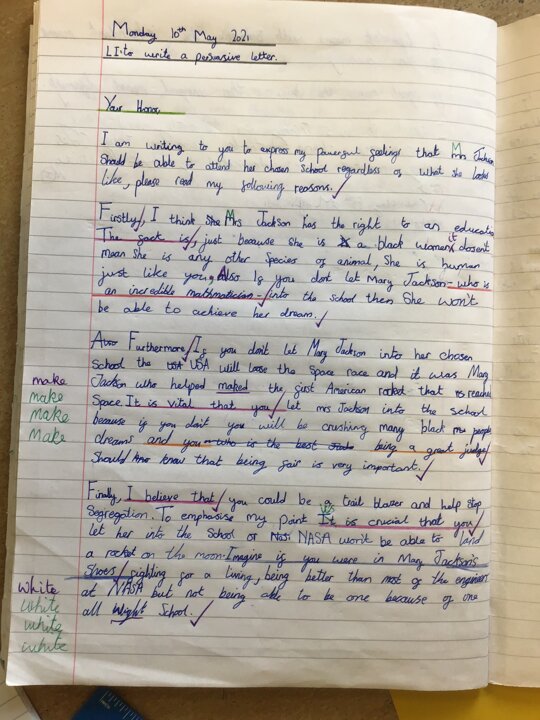 Monday 10th May 2021
LI: to write a persuasive letter.
Your Honor,
I am writing to you to express my powerful feelings that Mrs Jackson
Should be able to attend her chosen School regardless of what She looks
like, please read my following reasons.
Firstly, I think She Mrs Jackson has the right to an education
The fact is, just because She is a black women it dosent
mean She is any other Species of animal, She is human
just like you, Also If you dont let Mary Jackson - who is
an incredible mathmatician - into the school then She won't
be able to achieve her dream.
Also Furthermore, If you don't let Mary Jackson into her chosen
School the USA USA will loose the Space race and it was Mary
make Jackson who helped maked the first American rocket that reached
make Space. It is vital that you let mrs Jackson into the school
make because if you don't you will be crushing many black my people
Make dreams and you - who is the best being a great judge,
Should know that being fair is very important.
Finally, I believe that you could be a trail blazer and help stop
Segregation. To emphasise my point It is crucial that you
let her into the School or NASA won't be able to land
a rocket on the moon. Imagine if you were in Mary Jackson's
Shoes, fighting for a living, being better than most of the engineers
white at NASA but not being able to be one because of one
white all wight School.
white
white